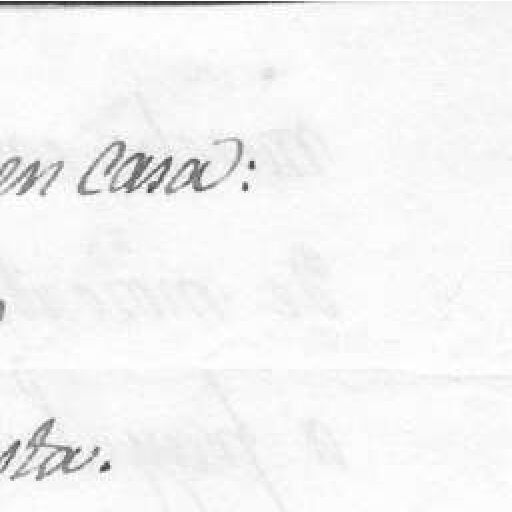 en casa:
sta.